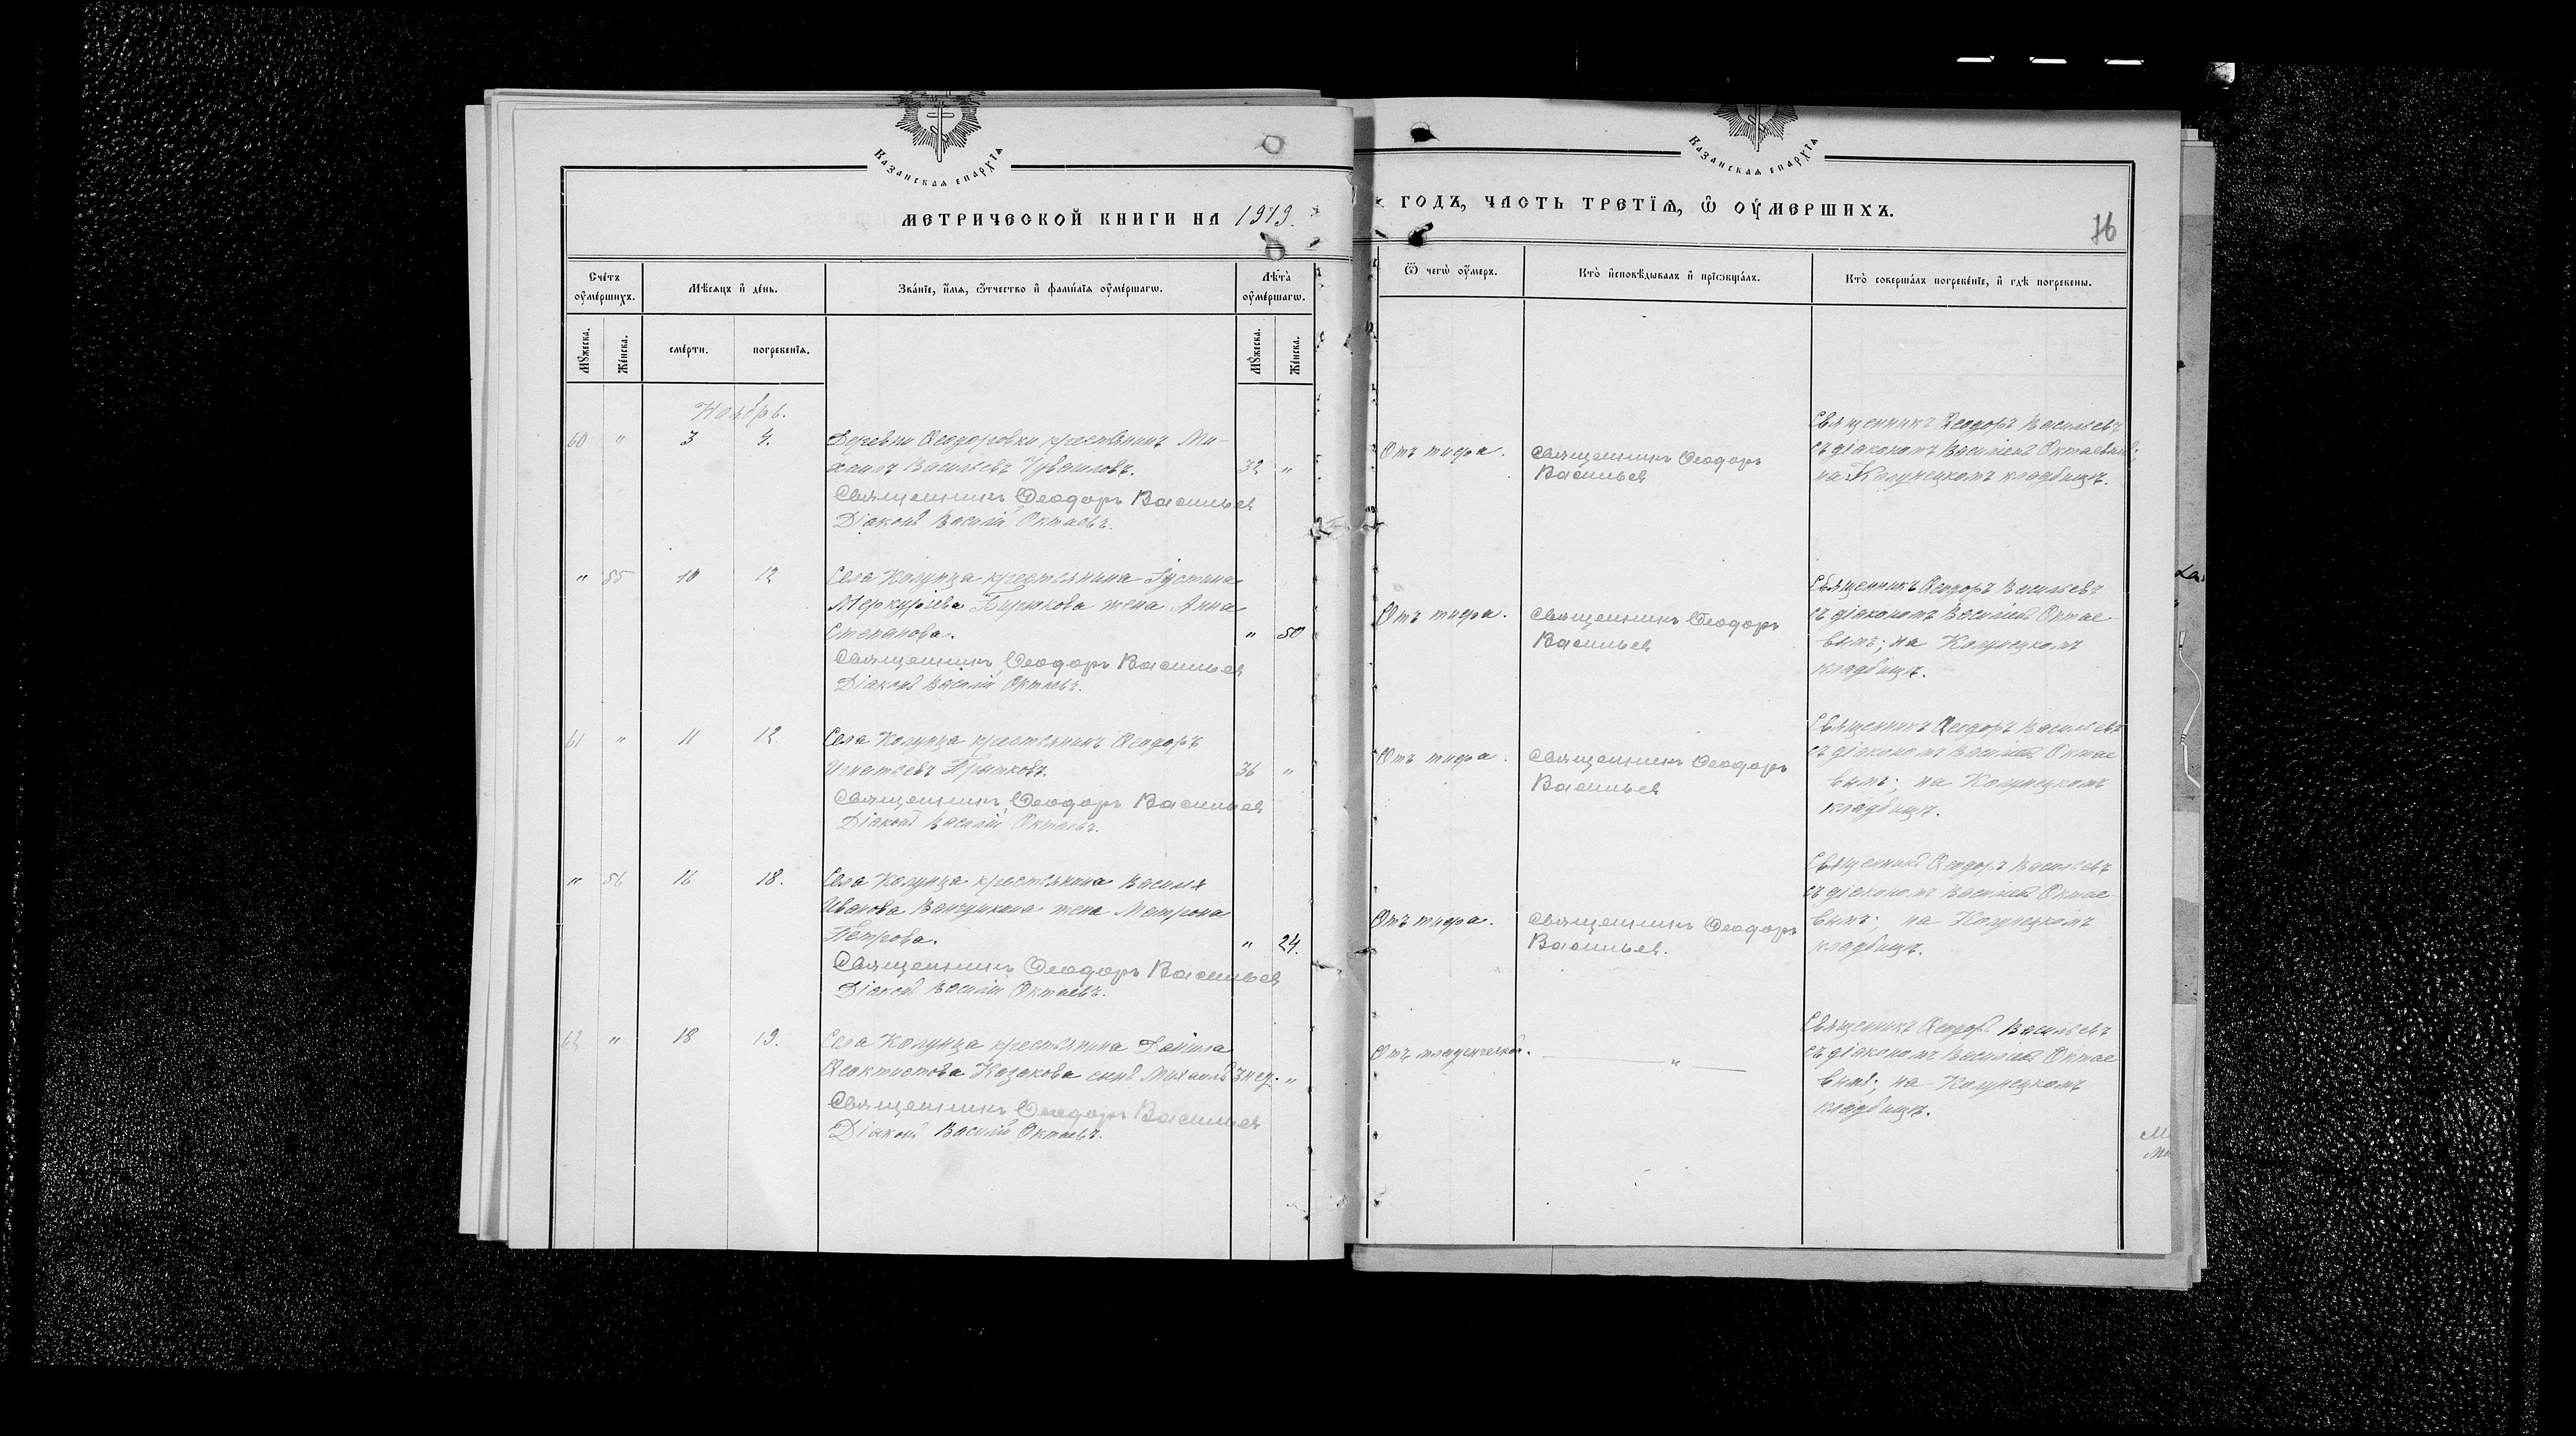 Казанская епархїѧ
Казанская епархїѧ
МЕТРИЧЕСКОЙ КНИГИ НА 1919.
ГОДЪ, ЧАСТЬ ТРЕТЇѦ, Ѡ ОУМЕРШИХЪ.
76
Счетъ оумершихъ.
Мѣсяцъ и день.
Званїе, имѧ, ѿчество и фамилїѧ оумершагѡ.
Лѣта оумершагѡ.
Ѿ чегѡ оумеръ.
Кто исповѣдывалъ и прїѡбщалъ.
Кто совершалъ погребенїе, и гдѣ погребены.
Мꙋжеска.
Женска.
смерти.
погребенїѧ.
Мꙋжеска.
Женска.
Ноябрь.
60 " 3 4. Деревни Ѳеодоровки крестьянинъ Ми-
хаилъ Васильевъ 32 "
Священникъ Ѳеодоръ Васильев
Діаконъ Василій Октаевъ.
Отъ тифа.
Священникъ Ѳеодоръ
Васильев
Священникъ Ѳеодоръ Васильевъ
съ діакономъ Василіемъ Октаевымъ;
на Колунецкомъ кладбищѣ.
" 55 10 12 Села Колунца крестьянина Іустина
Меркуріева Бирюкова жена Анна
Степанова. " 50
Священникъ Ѳеодоръ Васильев
Діаконъ Василій Октаевъ.
Отъ тифа.
Священникъ Ѳеодоръ
Васильев
Священникъ Ѳеодоръ Васильевъ
съ діакономъ Василіемъ Октае-
вымъ; на Колунецкомъ
кладбищѣ.
61 " 11 12. Села Колунца крестьянинъ Ѳеодоръ
Игнатьевъ Прытковъ. 36 "
Священникъ Ѳеодоръ Васильев
Діаконъ Василій Октаевъ.
Отъ тифа.
Священникъ Ѳеодоръ
Васильев
Священникъ Ѳеодоръ Васильевъ
съ діакономъ Василіемъ Октае
вымъ; на Колунецкомъ
кладбищѣ.
" 56 16 18. Села Колунца крестьянина Василія
Иванова жена Матрона
Петрова. " 24.
Священникъ Ѳеодоръ Васильев
Діаконъ Василій Октаевъ.
Отъ тифа.
Священникъ Ѳеодоръ
Васильев.
Священникъ Ѳеодоръ Васильевъ
съ діакономъ Василіемъ Октае-
вымъ; на Колунецкомъ
кладбищѣ.
62 " 18 19. Села Колунца крестьянина Даніила
Ѳеоктистова Казакова сынъ Михаилъ 3 нед. "
Священникъ Ѳеодоръ Васильев
Діаконъ Василій Октаевъ.
Отъ младенческой.
"
Священникъ Ѳеодоръ Васильевъ
съ діакономъ Василіемъ Октае
вымъ; на Колунецкомъ
кладбищѣ.